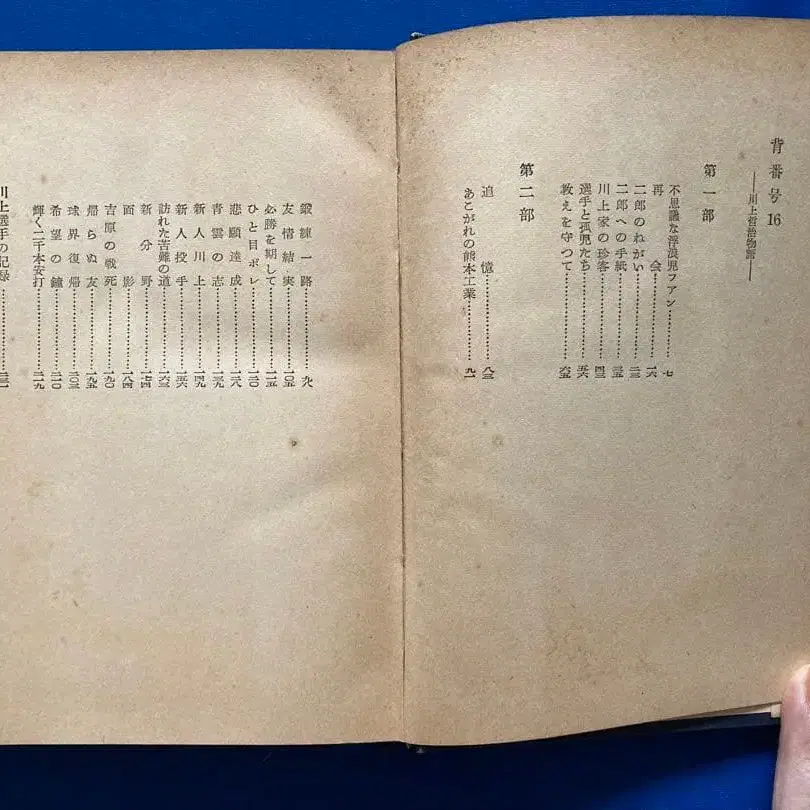 背番号16
――川上哲治物語――
第一部
不思議な浮浪児フアン…………七
再会…………一六
二郎のねがい…………二三
二郎への手紙…………三五
川上家の珍客…………四三
選手と孤児たち…………五六
教えを守つて…………六五
第二部
追憶…………八三
あこがれの熊本工業…………九一
鍛錬一路…………九八
友情結実…………一〇五
必勝を期して…………一一五
ひと目ボレ…………一二〇
悲願達成…………一二八
青雲の志…………一三九
新人川上…………一四九
新人投手…………一五六
訪れた苦難の道…………一六三
新分野…………一七四
面影…………一八四
吉原の戦死…………一九〇
帰らぬ友…………一九五
球界復帰…………二〇三
希望の鐘…………二一〇
輝く二千本安打…………二一九
川上選手の記録…………二三一